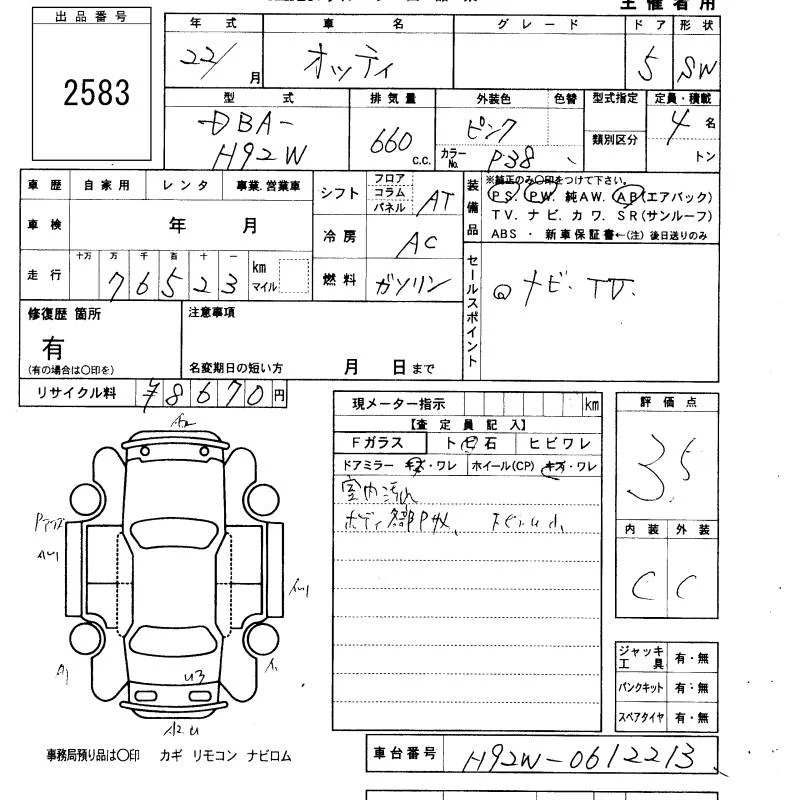 主催者用
出品番号
2583
年式 車名 グレード ドア 形状
22/ 月 オッティ 5 SW
型式 排気量 外装色 色替 型式指定 定員・積載
DBA-H92W 660 c.c. ピンク 類別区分 4 名
カラーNo. P38 トン
車歴 自家用 レンタ 事業.営業車
車検 年 月
走行 十万 万 千 百 十 一 km マイル
76523
シフト フロア コラム パネル AT
冷房 AC
燃料 ガソリン
装備品
※純正のみ○印をつけて下さい。
PS. PW. 純AW. AB(エアバック)
TV. ナビ. カワ. SR(サンルーフ)
ABS ・ 新車保証書←(注) 後日送りのみ
セールスポイント
ナビ・TV.
修復歴 箇所
有
(有の場合は○印を)
注意事項
名変期日の短い方 月 日まで
リサイクル料 ¥8670円
現メーター指示 km
【査定員記入】
Fガラス ト 石 ヒビワレ
ドアミラー キズ・ワレ ホイール(CP) キズ・ワレ
室内汚れ
ボディ各部
評価点
3.5
内装 外装
C C
A2
A1
U3
A2 U
ジャッキ工具 有・無
パンクキット 有・無
スペアタイヤ 有・無
事務局預り品は○印 カギ リモコン ナビロム
車台番号 H92W-0612213